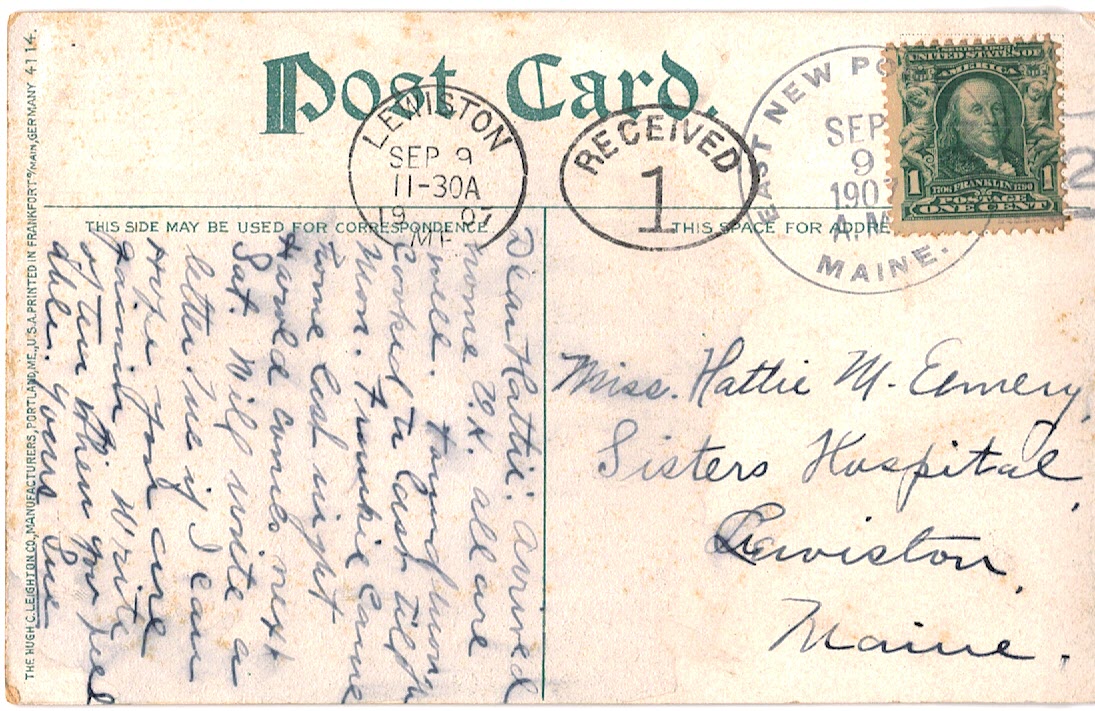 Post Card.
LEWISTON
SEP 9
11-30A
19 07
ME
RECEIVED
1
EAST NEW PO
SEP
9
1907
A.M
MAINE.
UNITED STATES OF
AMERICA
1 1706 FRANKLIN 1790 1
POSTAGE
ONE CENT
2
THIS SIDE MAY BE USED FOR CORRESPONDENCE
THIS SPACE FOR ADDRE
Dear Hattie: arrived
home O.K. all are
well.
cooked to last till
Mon. Frankie came
home last night
Harold comes next
Sat. Will write a
letter Sue if I can
Hope you are
gaining Write
often when you feel
able. yours Sue
Miss. Hattie M. Emery,
Sisters Hospital,
Lewiston,
Maine.
THE HUGH C. LEIGHTON CO., MANUFACTURERS, PORTLAND, ME., U.S.A. PRINTED IN FRANKFORT o/MAIN, GERMANY 4114.